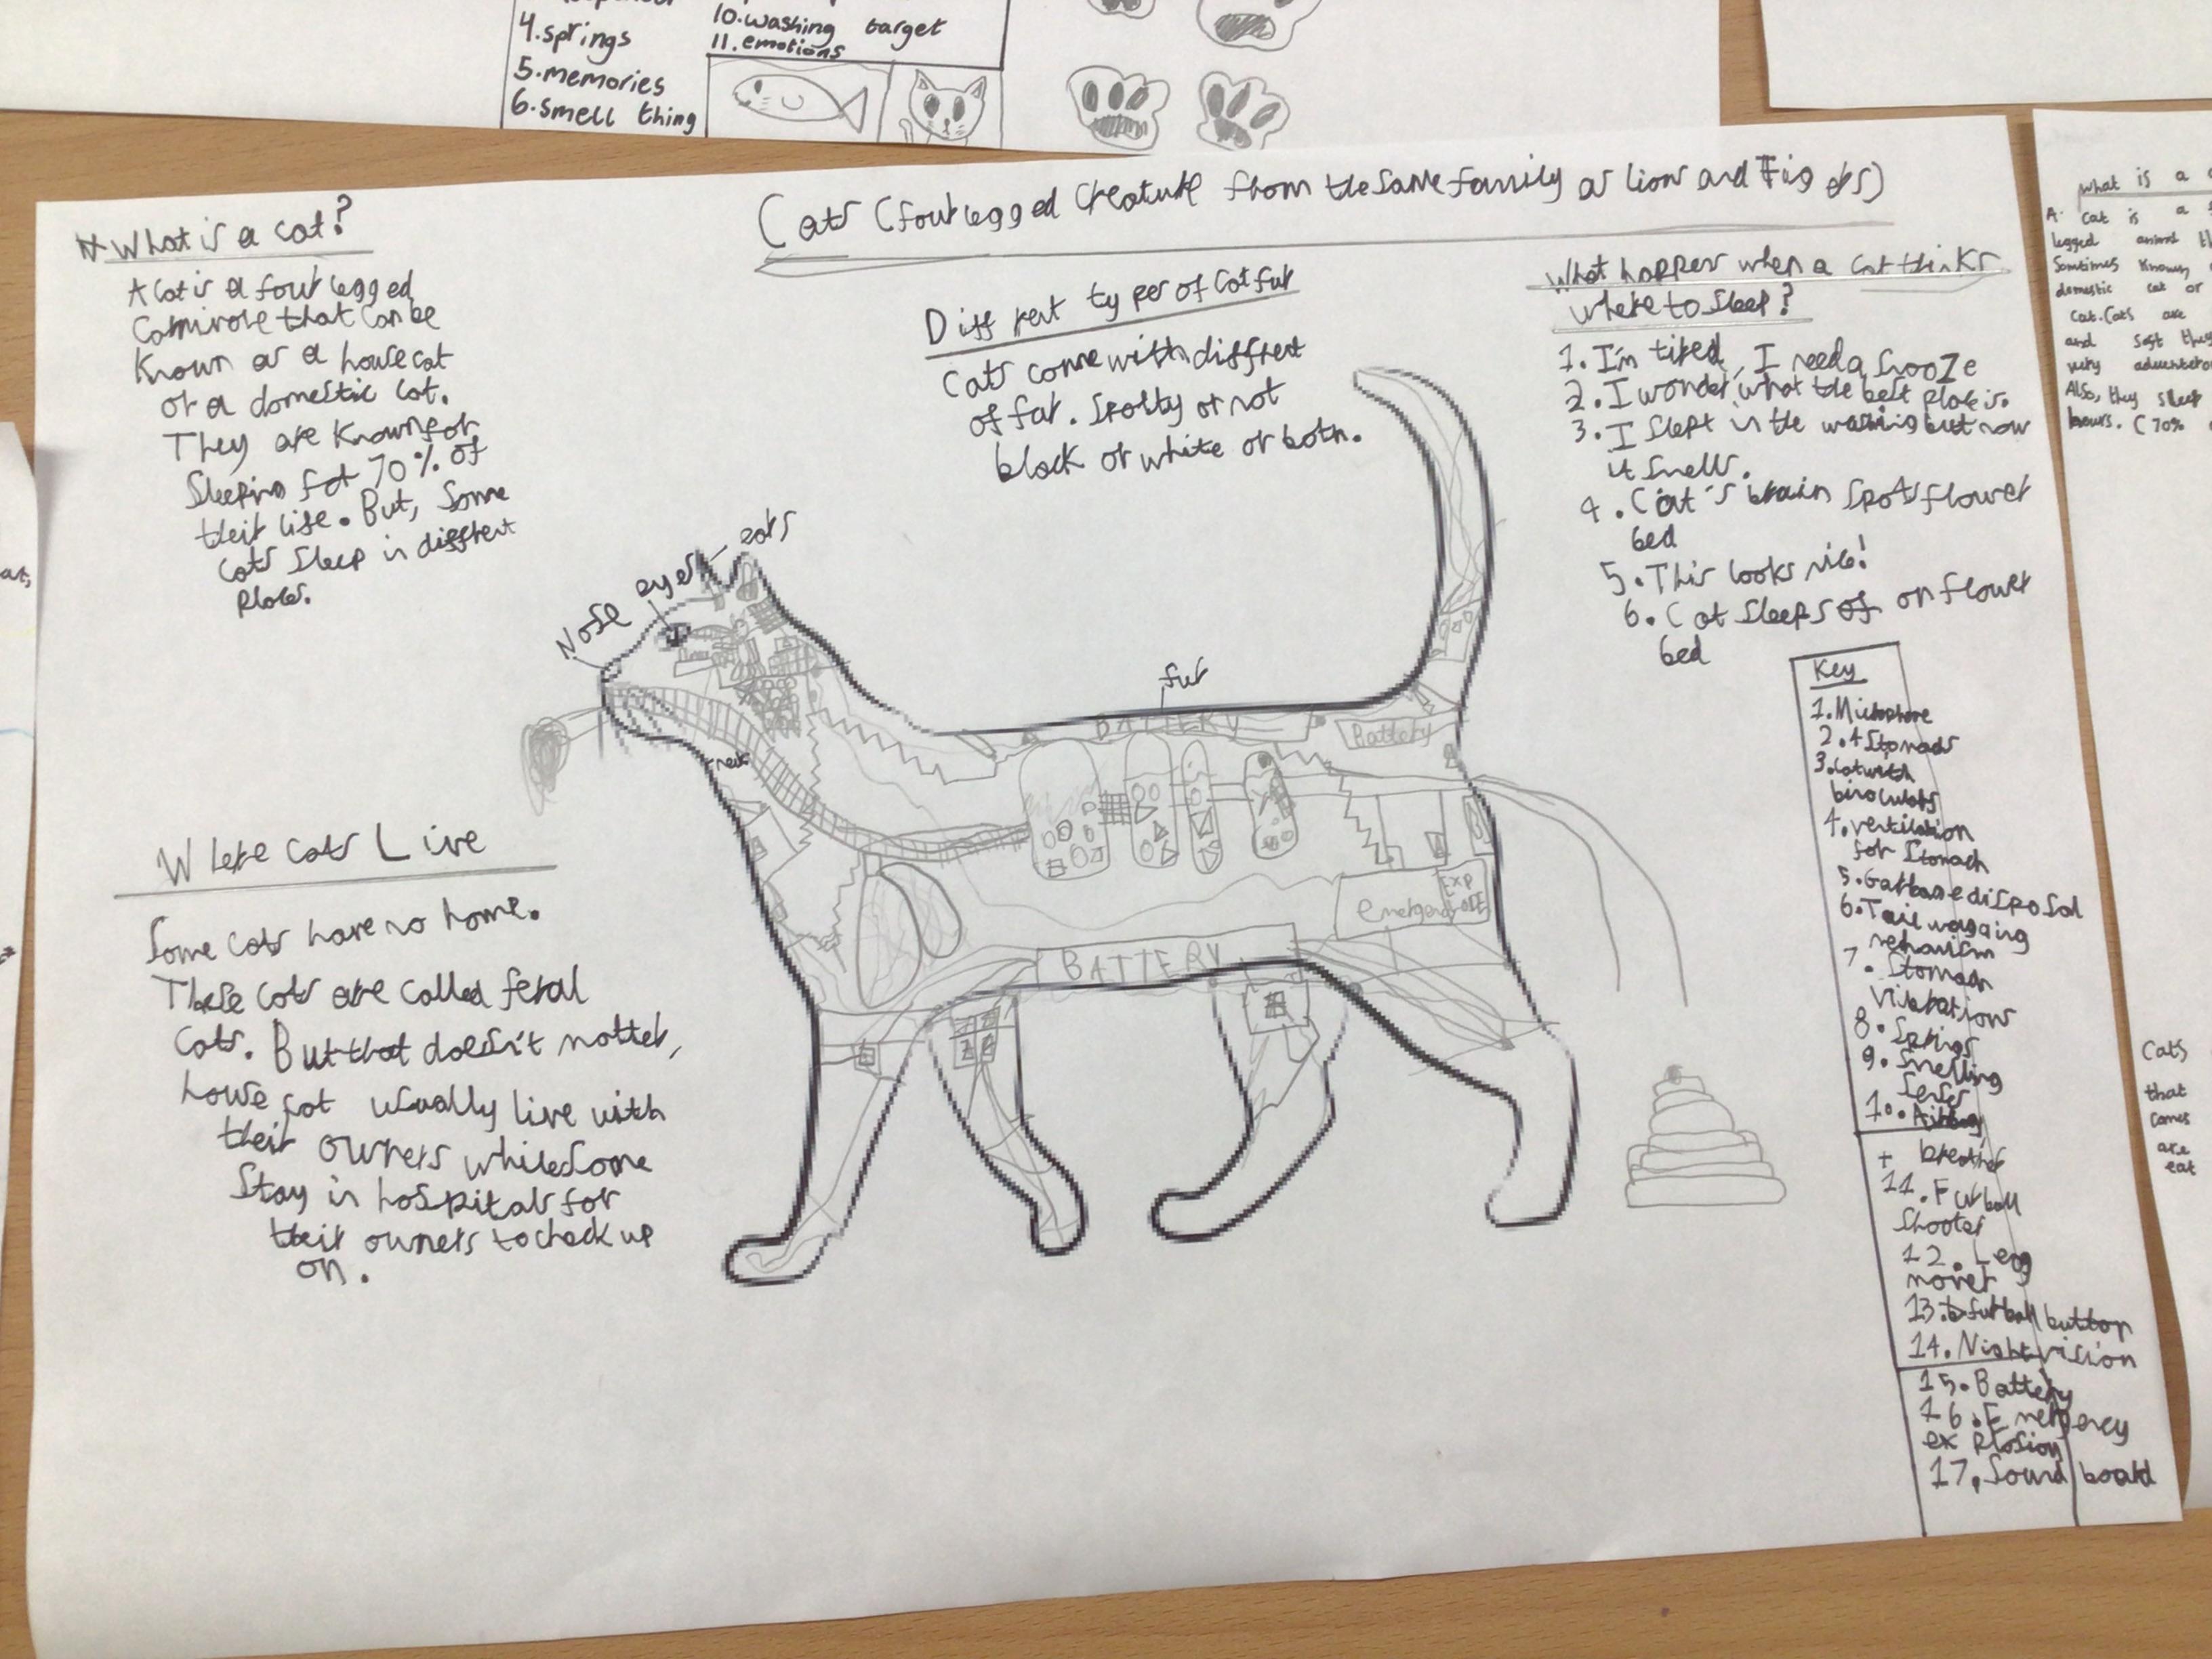 4.springs
5.memories
6.smell thing
10.washing target
11.emotions
Cats (four legged creature from the same family as lions and Tigers)
What is a cat?
A cat is a four legged
Carnivore that can be
Known as a house cat
or a domestic cat.
They are Known for
Sleeping for 70% of
their life. But, Some
cats sleep in different
places.
Different types of Cat fur
Cats come with different
of fur. Spotty or not
black or white or both.
What happens when a cat thinks
where to sleep?
1. I'm tired, I need a snooze
2. I wonder what the best place is.
3. I slept in the washing but now
it smells.
4. Cat's brain spots flower
bed
5. This looks nice!
6. Cat sleeps of on flower
bed
Nose
eyes
ears
fur
neck
BATTERY
Battery
emergency
EXP
LODE
BATTERY
Where cats Live
Some cats have no home.
These cats are called feral
cats. But that doesn't matter,
house cat usually live with
their owners while some
Stay in hospitals for
their owners to check up
on.
Key
1. Microphone
2. 4 Stomachs
3. cat with
binoculars
4. ventilation
for Stomach
5. Garbage disposal
6. Tail wagging
mechanism
7. Stomach
Vibrations
8. Springs
9. Smelling
Senses
10. Airbag
+ breather
11. Fur ball
Shooter
12. Leg
mover
13. furball button
14. Night vision
15. Battery
16. Emergency
explosion
17. Sound board
what is a
A cat is a
legged animal
Somtimes Known
domestic cat or
cat. Cats are
and soft they
very
Also, they sleep
hours. (70%
Cats
that
comes
are
eat